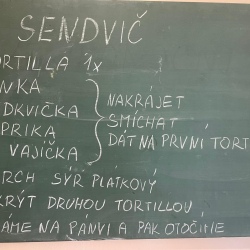 SENDVIČ
ORTILLA 1x
NKA
DKVIČKA
PRIKA
VAJÍČKA
NAKRÁJET
SMÍCHAT
DÁT NA PRVNÍ TORT
RCH SÝR PLÁTKOVÝ
KRÝT DRUHOU TORTILLOU
ÁME NA PÁNVI A PAK OTOČÍME